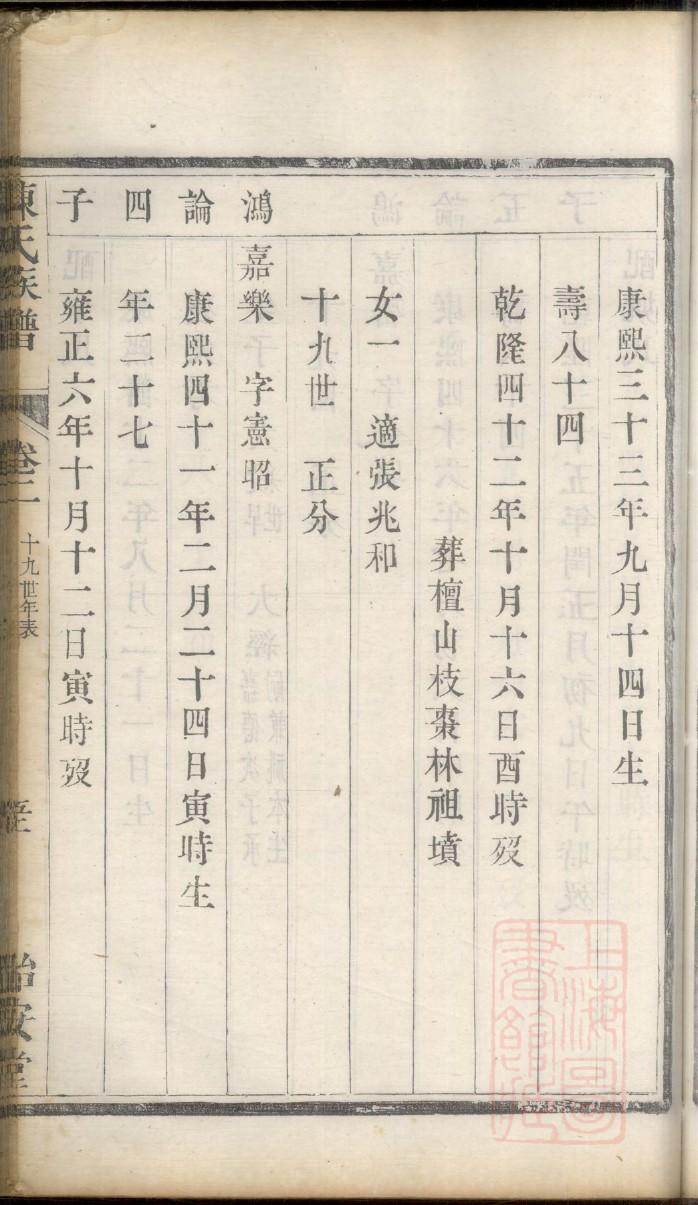 康熙三十三年九月十四日生
壽八十四
乾隆四十二年十月十六日酉時歿
葬檀山枝棗林祖墳
女一 適張兆和
十九世 正分
鴻 嘉樂 字憲昭
論 康熙四十一年二月二十四日寅時生
四 年二十七
子 雍正六年十月十二日寅時歿
陳氏族譜 卷二 十九世年表
治安堂
上海圖書館藏